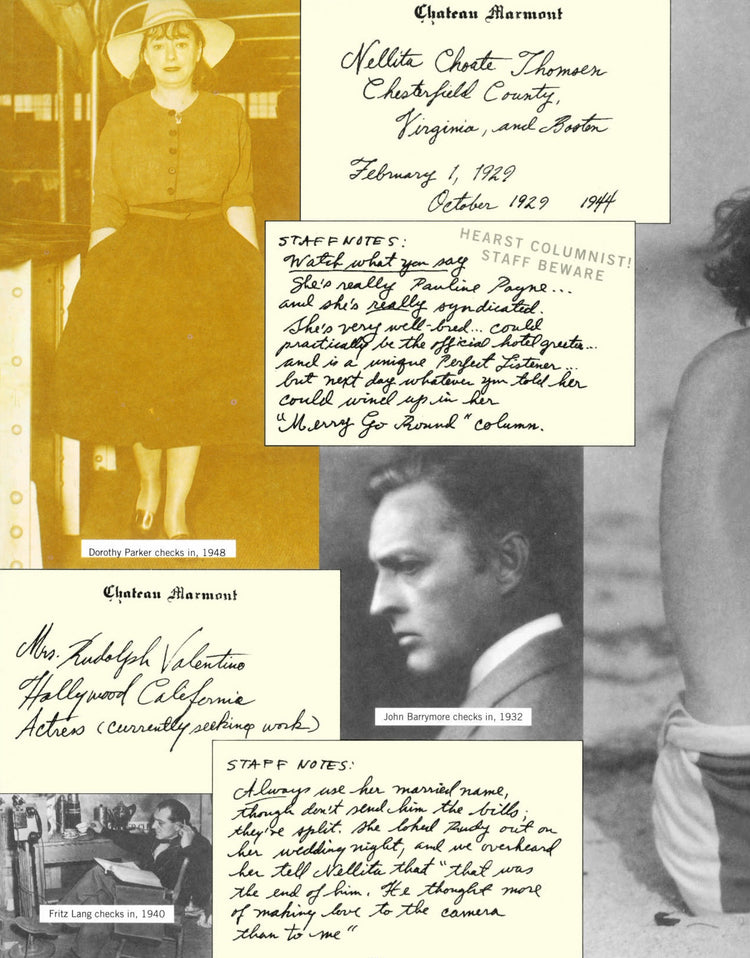 Chateau Marmont
Nellita Choate Thomsen
Chesterfield County,
Virginia, and Boston
February 1, 1929
October 1929 1944
STAFF NOTES:
HEARST COLUMNIST!
STAFF BEWARE
Watch what you say
She's really Pauline Payne...
and she's really syndicated.
She's very well-bred... could
practically be the official hotel greeter...
and is a unique Perfect Listener...
but next day whatever you told her
could wind up in her
"Merry Go Round" column.
Dorothy Parker checks in, 1948
John Barrymore checks in, 1932
Chateau Marmont
Mrs. Rudolph Valentino
Hollywood California
Actress (currently seeking work)
STAFF NOTES:
Always use her married name,
though don't send him the bills;
they're split. She loked Rudy out on
her wedding night, and we overheard
her tell Nellita that "that was
the end of him. He thought more
of making love to the camera
than to me"
Fritz Lang checks in, 1940